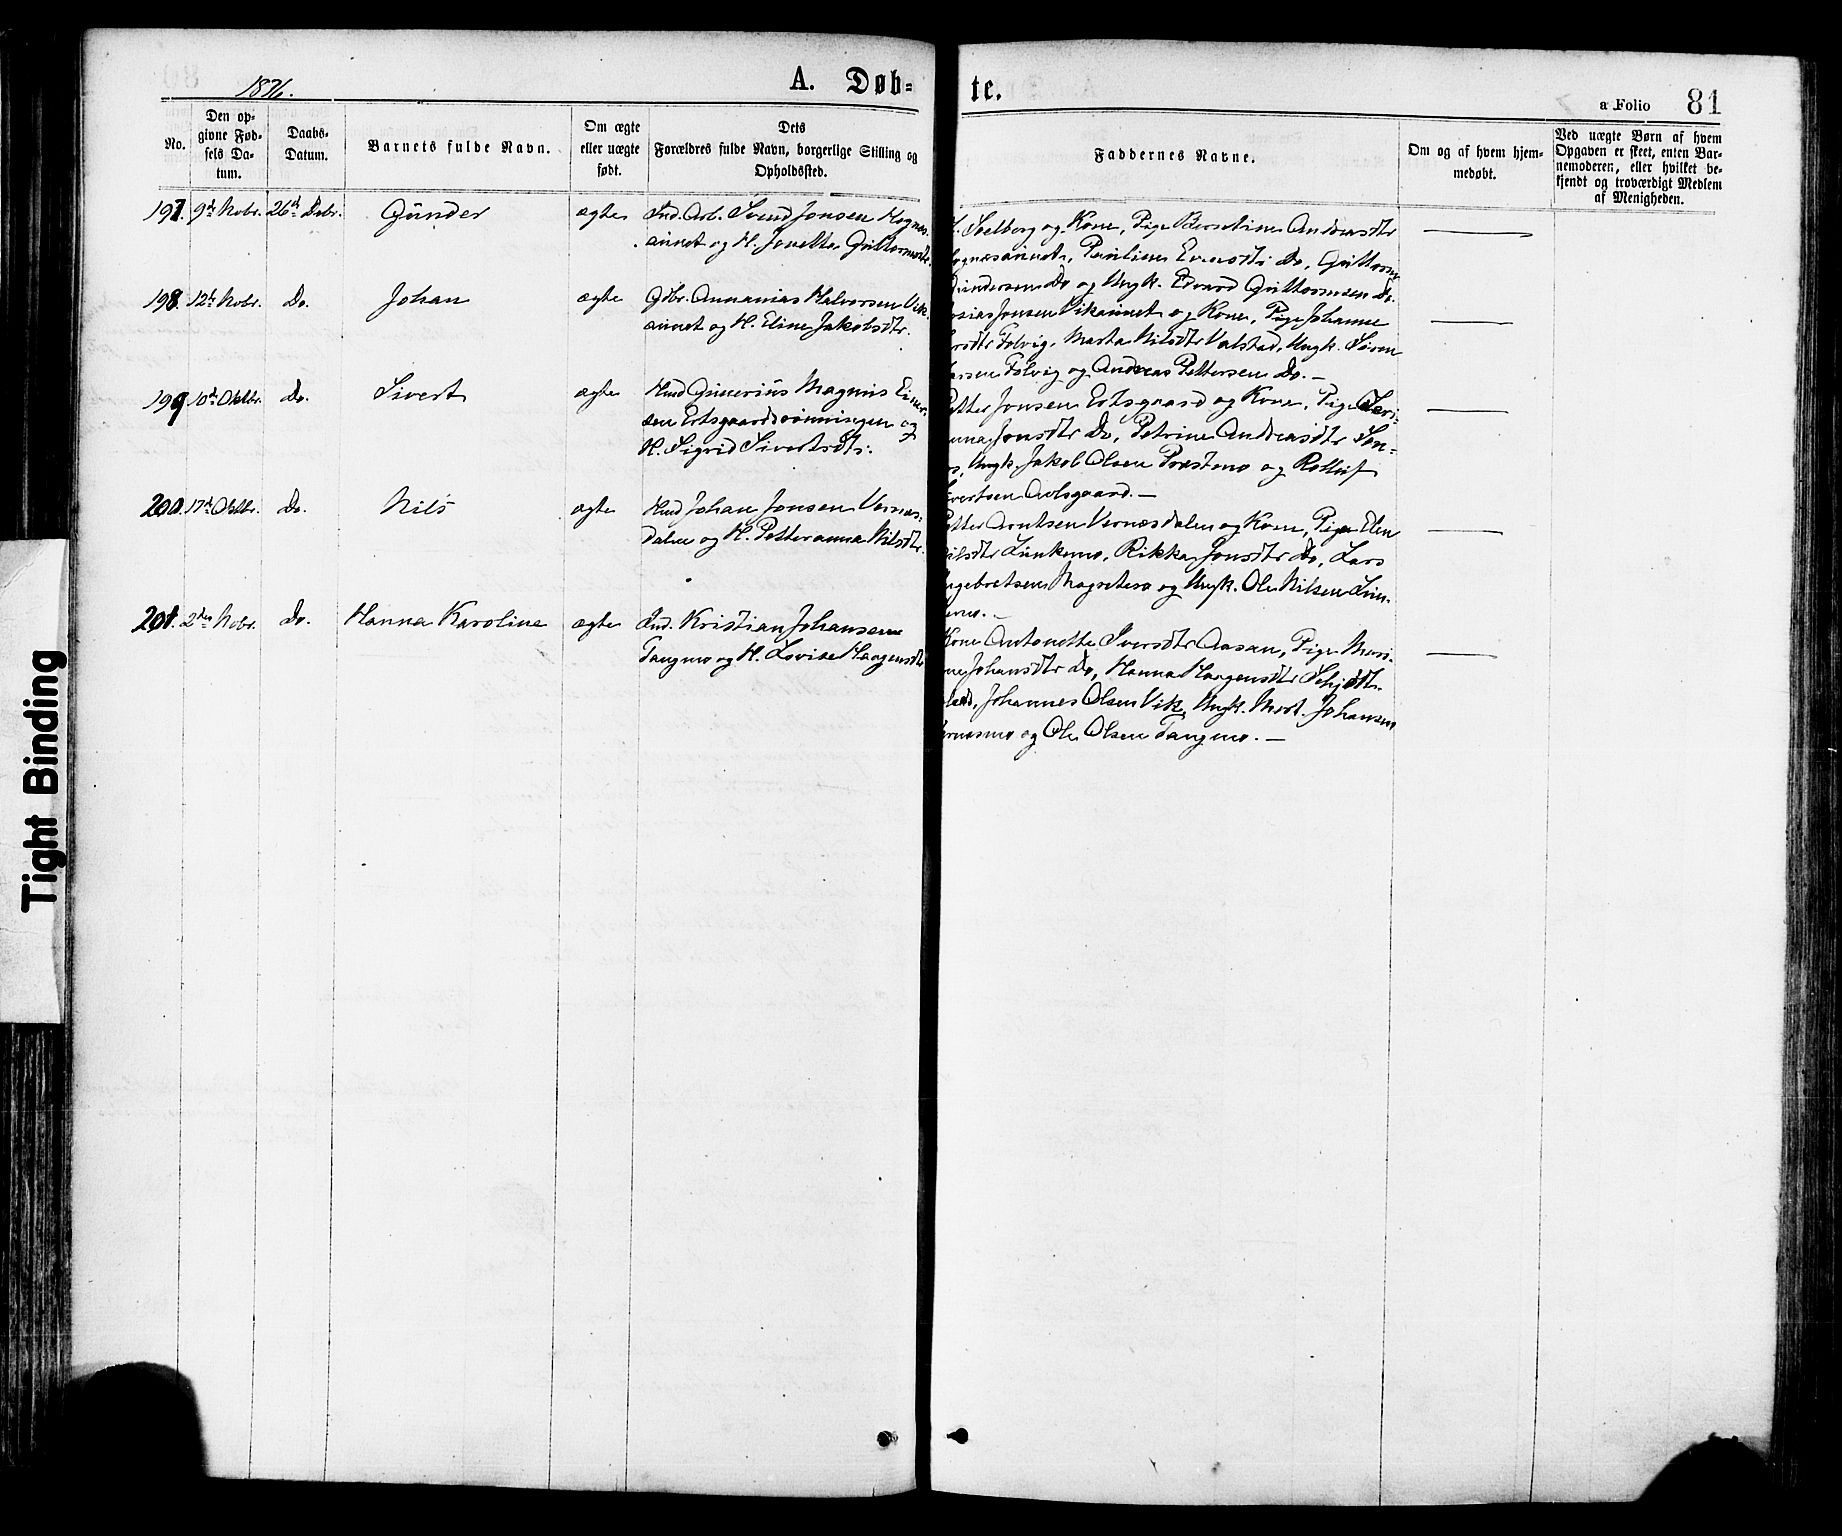 1876.
A. Døb-
te.
a Folio 81
No.
Den op-
givne Fød-
sels Da-
tum.
Daabs-
Datum.
Barnets fulde Navn.
Om ægte
eller uægte
født.
Dets
Forældres fulde Navn, borgerlige Stilling og
Opholdssted.
Faddernes Navne.
Om og af hvem hjem-
medøbt.
Ved uægte Børn af hvem
Opgaven er skeet, enten Bar-
nemoderen, eller hvilket be-
kjendt og troværdigt Medlem
af Menigheden.
197. 9de Novbr. 26de Debr. Günder ægte Ind. Arb. Svend Jonsen
og H. Jonetta
Selborg og Kone, Pige Andreasdtr
Do,
Do og Ungk. Edvard Guttormsen Do.
198. 12te Novbr. Do. Johan ægte Gbr. Annanias Halvorsen Vik-
aünet og H. Eline Jakobsdtr.
Jonsen Vikaünet og Kone, Pige Johanna
Folvig, Marta Nilsdtr Valstad, Ungk. Søren
Folvig og Andreas Pettersen Do. —
199 10de Oktbr. Do. Sivert ægte Hmd Gunerius Magnus Einar-
sen Ertsgaardsrønningen og
H. Sigrid Sivertsdtr.
Petter Jonsen Ertsgaard og Kone, Pige
Jonsdtr Do, Petrine Andreasdtr
Ungk. Jakob Olsen Præstmo og Rolluf
Avlsgaard. —
200. 17de Oktbr. Do. Nils ægte Hmd Johan Jonsen Vernes-
dalen og H. Petteranna Nilsdtr.
Petter Arntsen Vernæsdalen og Kone, Pige Elen
Nilsdtr Lünkemo, Rikka Jonsdtr Do, Lars
og Ungk. Ole Nilsen Lün-
kemo. —
201. 2den Novbr. Do. Hanna Karoline ægte Ind. Kristian Johansen
Tangmo og H. Lovise Haagensdtr
Kone Antonetta Iversdtr Aasan, Pige
Johansdtr Do, Hanna Haagensdtr
Johannes Olsen Vik, Ungk. Johansen
og Ole Olsen Tangmo. —
Tight Binding